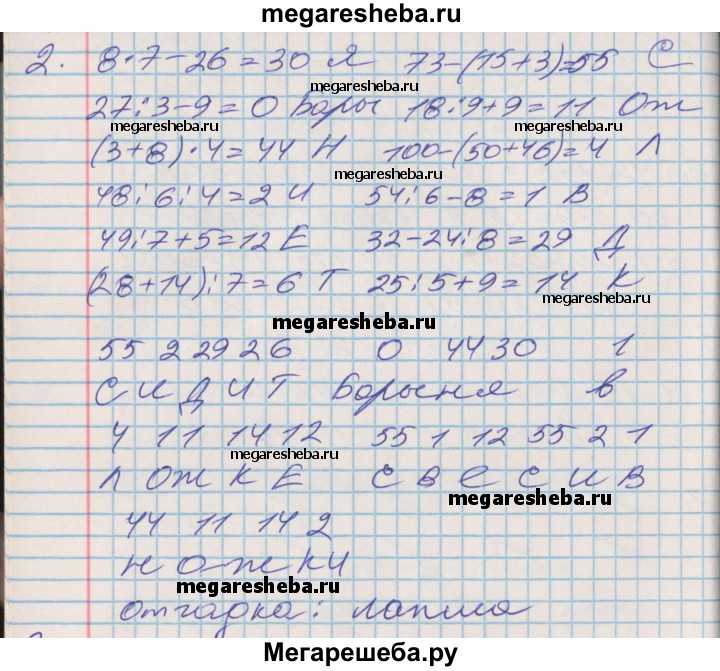 megaresheba.ru
2. 8·7-26=30 Я 73-(15+3)=55 С
megaresheba.ru
27:3-9=0 Бары 18:9+9=11 Ож
megaresheba.ru megaresheba.ru
(3+8)·4=44 Н 100-(50+46)=4 Л
megaresheba.ru
48:6:4=2 И 54:6-8=1 В
49:7+5=12 Е 32-24:8=29 Д
(28+14):7=6 Т 25:5+9=14 К
megaresheba.ru
megaresheba.ru
55 2 29 2 6 0 44 30 1
СИДИТ Барыня в
4 11 14 12 55 1 12 55 2 1
megaresheba.ru
Л ОЖ К Е С В Е С И В
megaresheba.ru
44 11 14 2
Н О-Ж К И
megaresheba.ru
отгадка: лапша
Мегарешеба.ру